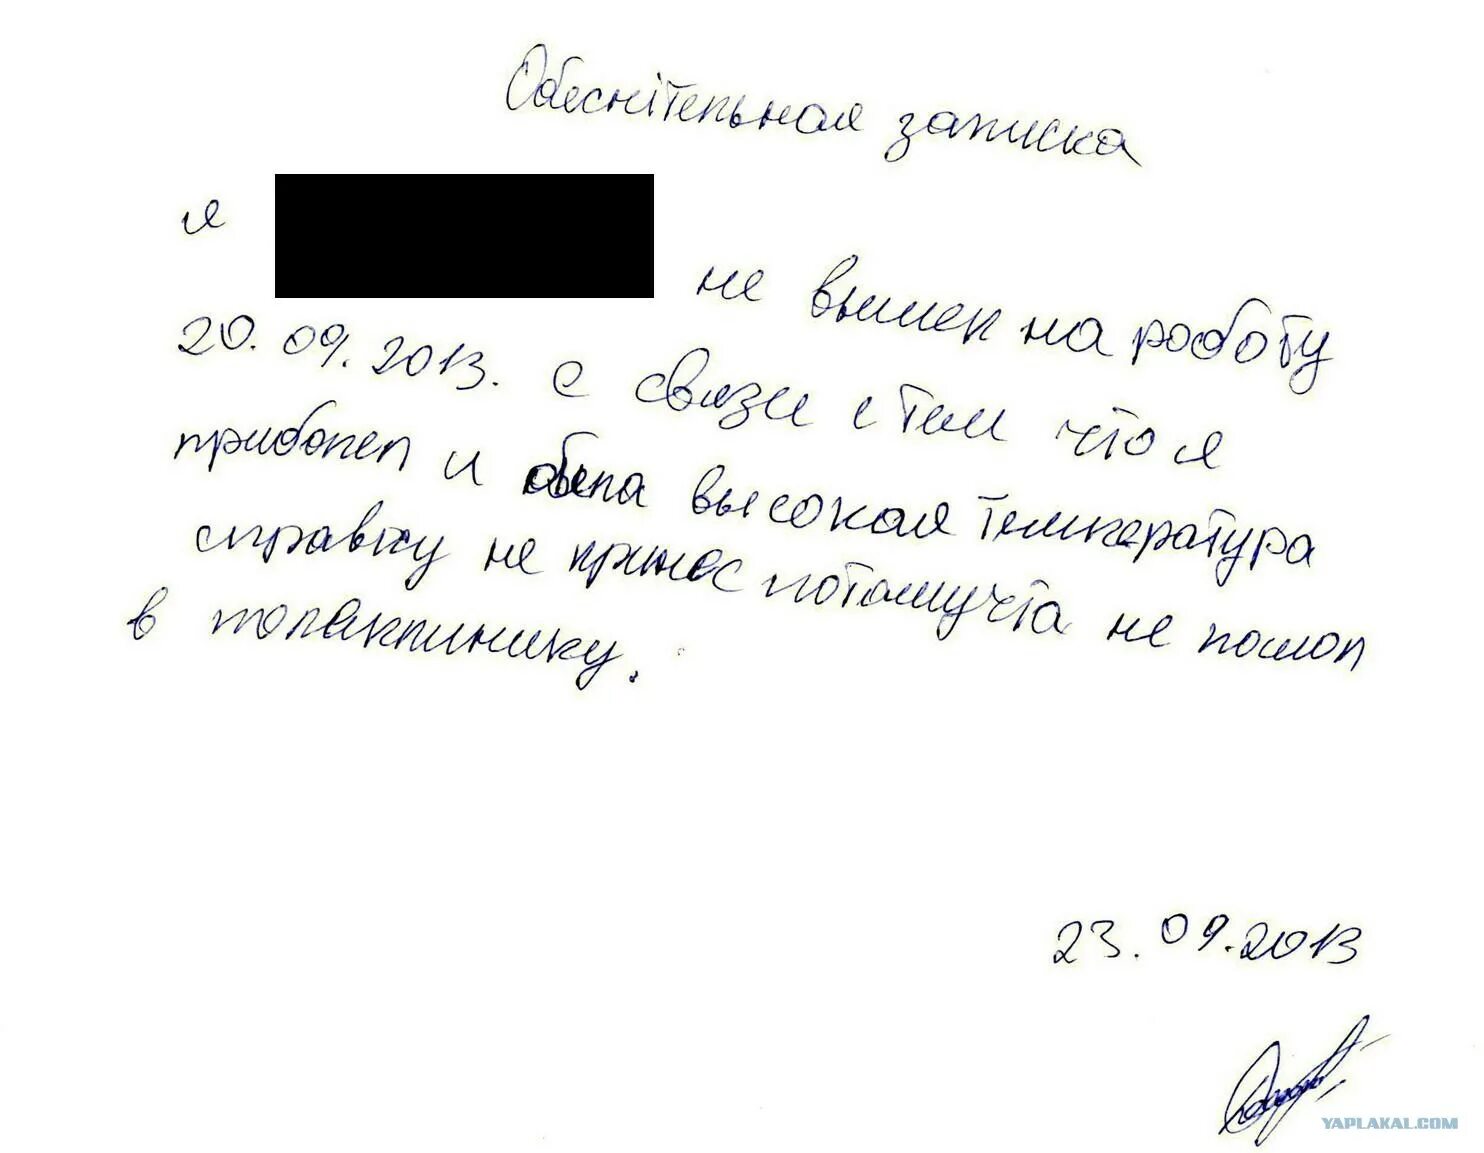 Обеснітельная записка
я
не вышел на роботу
20.09.2013. с связи с тем что я
приболел и была высокая температура
справку не принес потомучта не пошол
в поликлинику.
23.09.2013
YAPLAKAL.COM